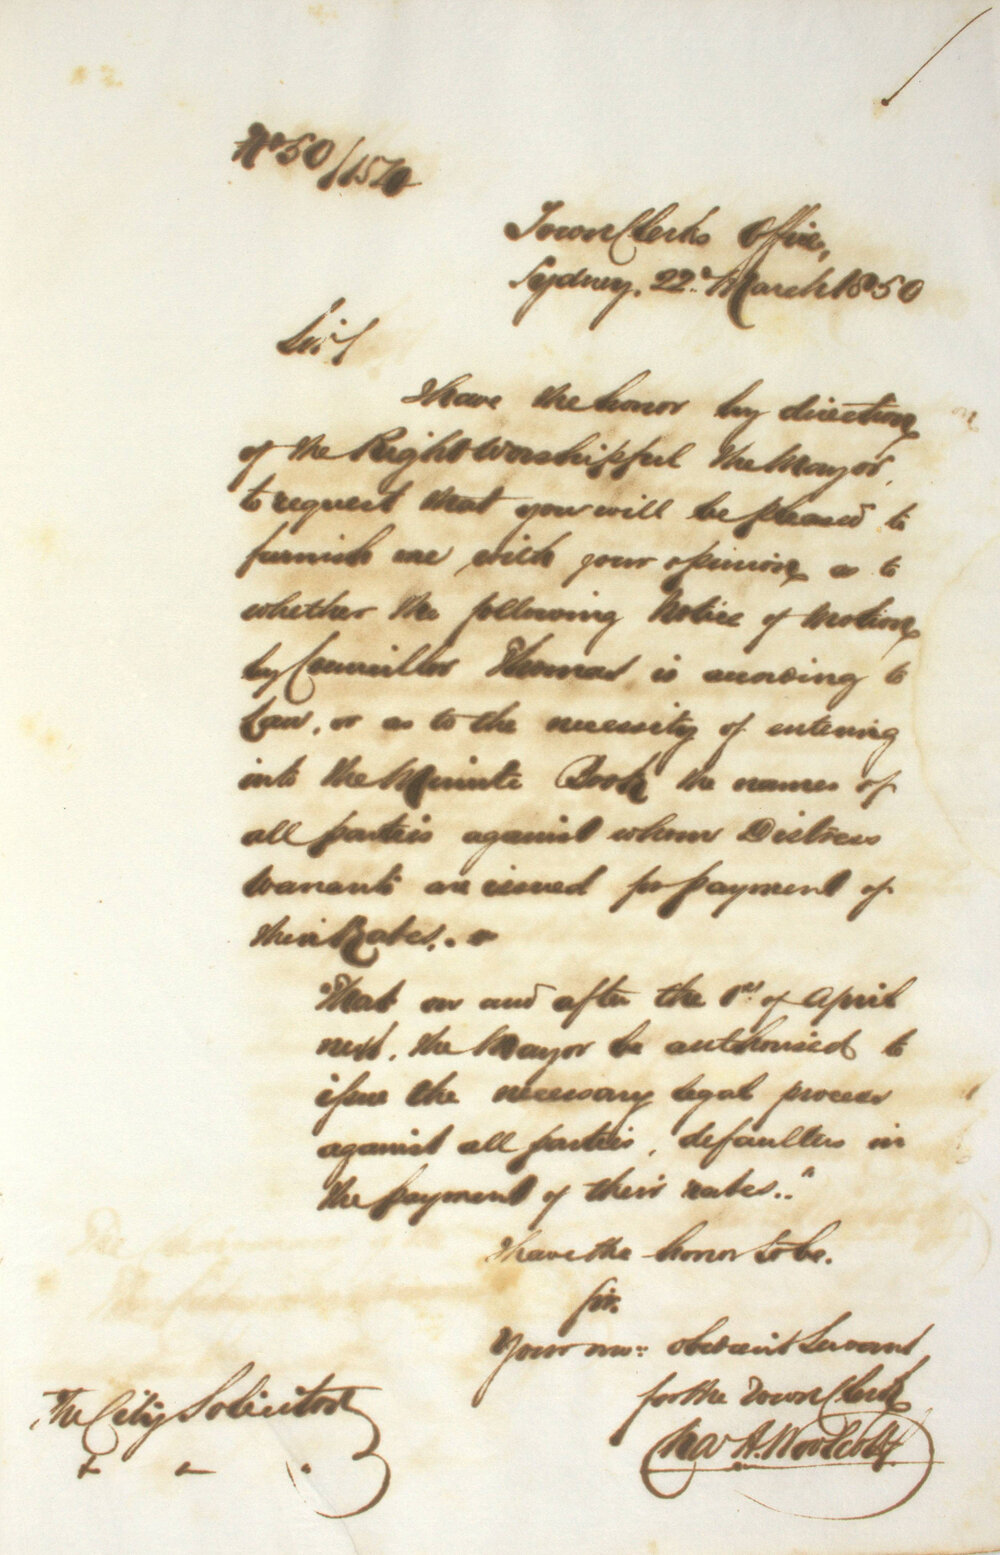 No 50/1570
Town Clerks Office,
Sydney, 22d March 1850
Sir,
I have the honor by direction
of the Right Worshipful the Mayor,
to request that you will be pleased to
furnish me with your opinion as to
whether the following Notice of Motion
by Councillor Thomas is according to
Law, or as to the necessity of entering
into the Minute Book the names of
all parties against whom Distress
warrants are issued for payment of
their Rates..
"That on and after the 1st of April
next, the Mayor be authorised to
issue the necessary legal process
against all parties, defaulters in
the payment of their rates.."
I have the honor to be.
Sir.
Your mo: obedient Servant
for the Town Clerk
Chas H. Woolcott
The City Solicitor